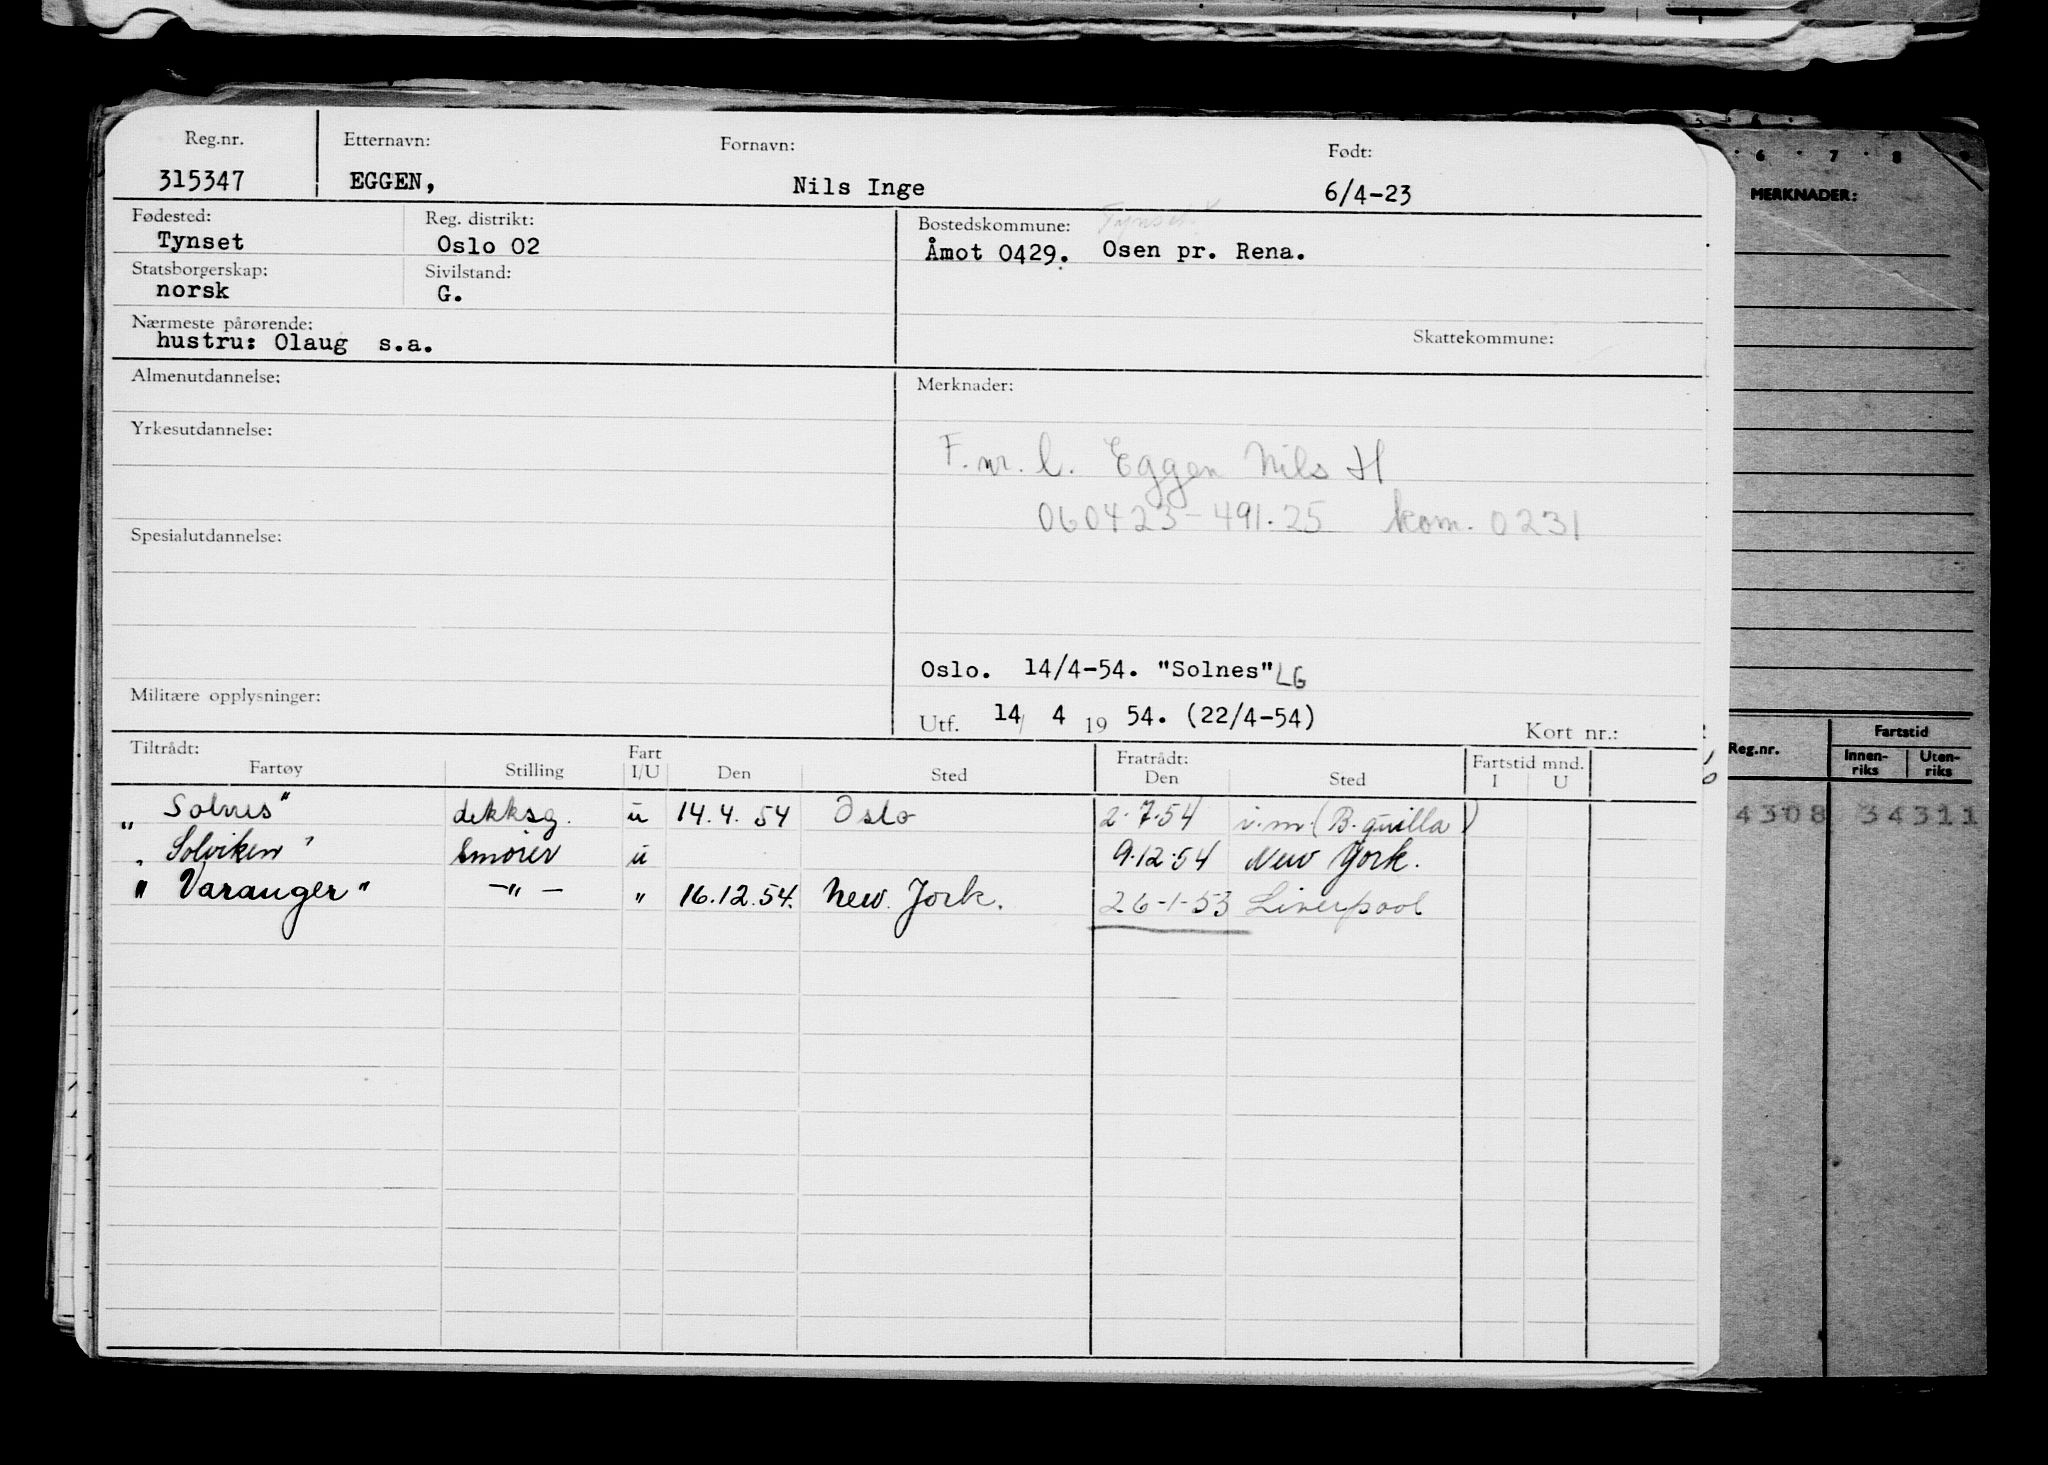 Reg.nr. Etternavn: Fornavn: Født:
315347 EGGEN, Nils Inge 6/4-23
Fødested: Reg. distrikt: Bostedskommune: Tynset
Tynset Oslo 02 Åmot 0429. Osen pr. Rena.
Statsborgerskap: Sivilstand:
norsk G.
Nærmeste pårørende: Skattekommune:
hustru: Olaug s.a.
Almenutdannelse: Merknader:
Yrkesutdannelse:
F.nr. l. Eggen Nils H
060423-491.25 kom. 0231
Spesialutdannelse:
Oslo. 14/4-54. "Solnes" LG
Militære opplysninger:
Utf. 14/ 4 19 54. (22/4-54) Kort nr.:
Tiltrådt: Fart Fratrådt: Fartstid mnd.
Fartøy Stilling I/U Den Sted Den Sted I U
„Solnes" dekksg. u 14.4.54 Oslo 2.7.54 i.m. (B.quilla)
„Solviken" Smører u 9.12.54 New York.
"Varanger" -"- " 16.12.54. New York. 26-1-53 Liverpool
6 7 8 9
MERKNADER:
Reg.nr. Fartstid
Innen-riks Uten-riks
4308 34311